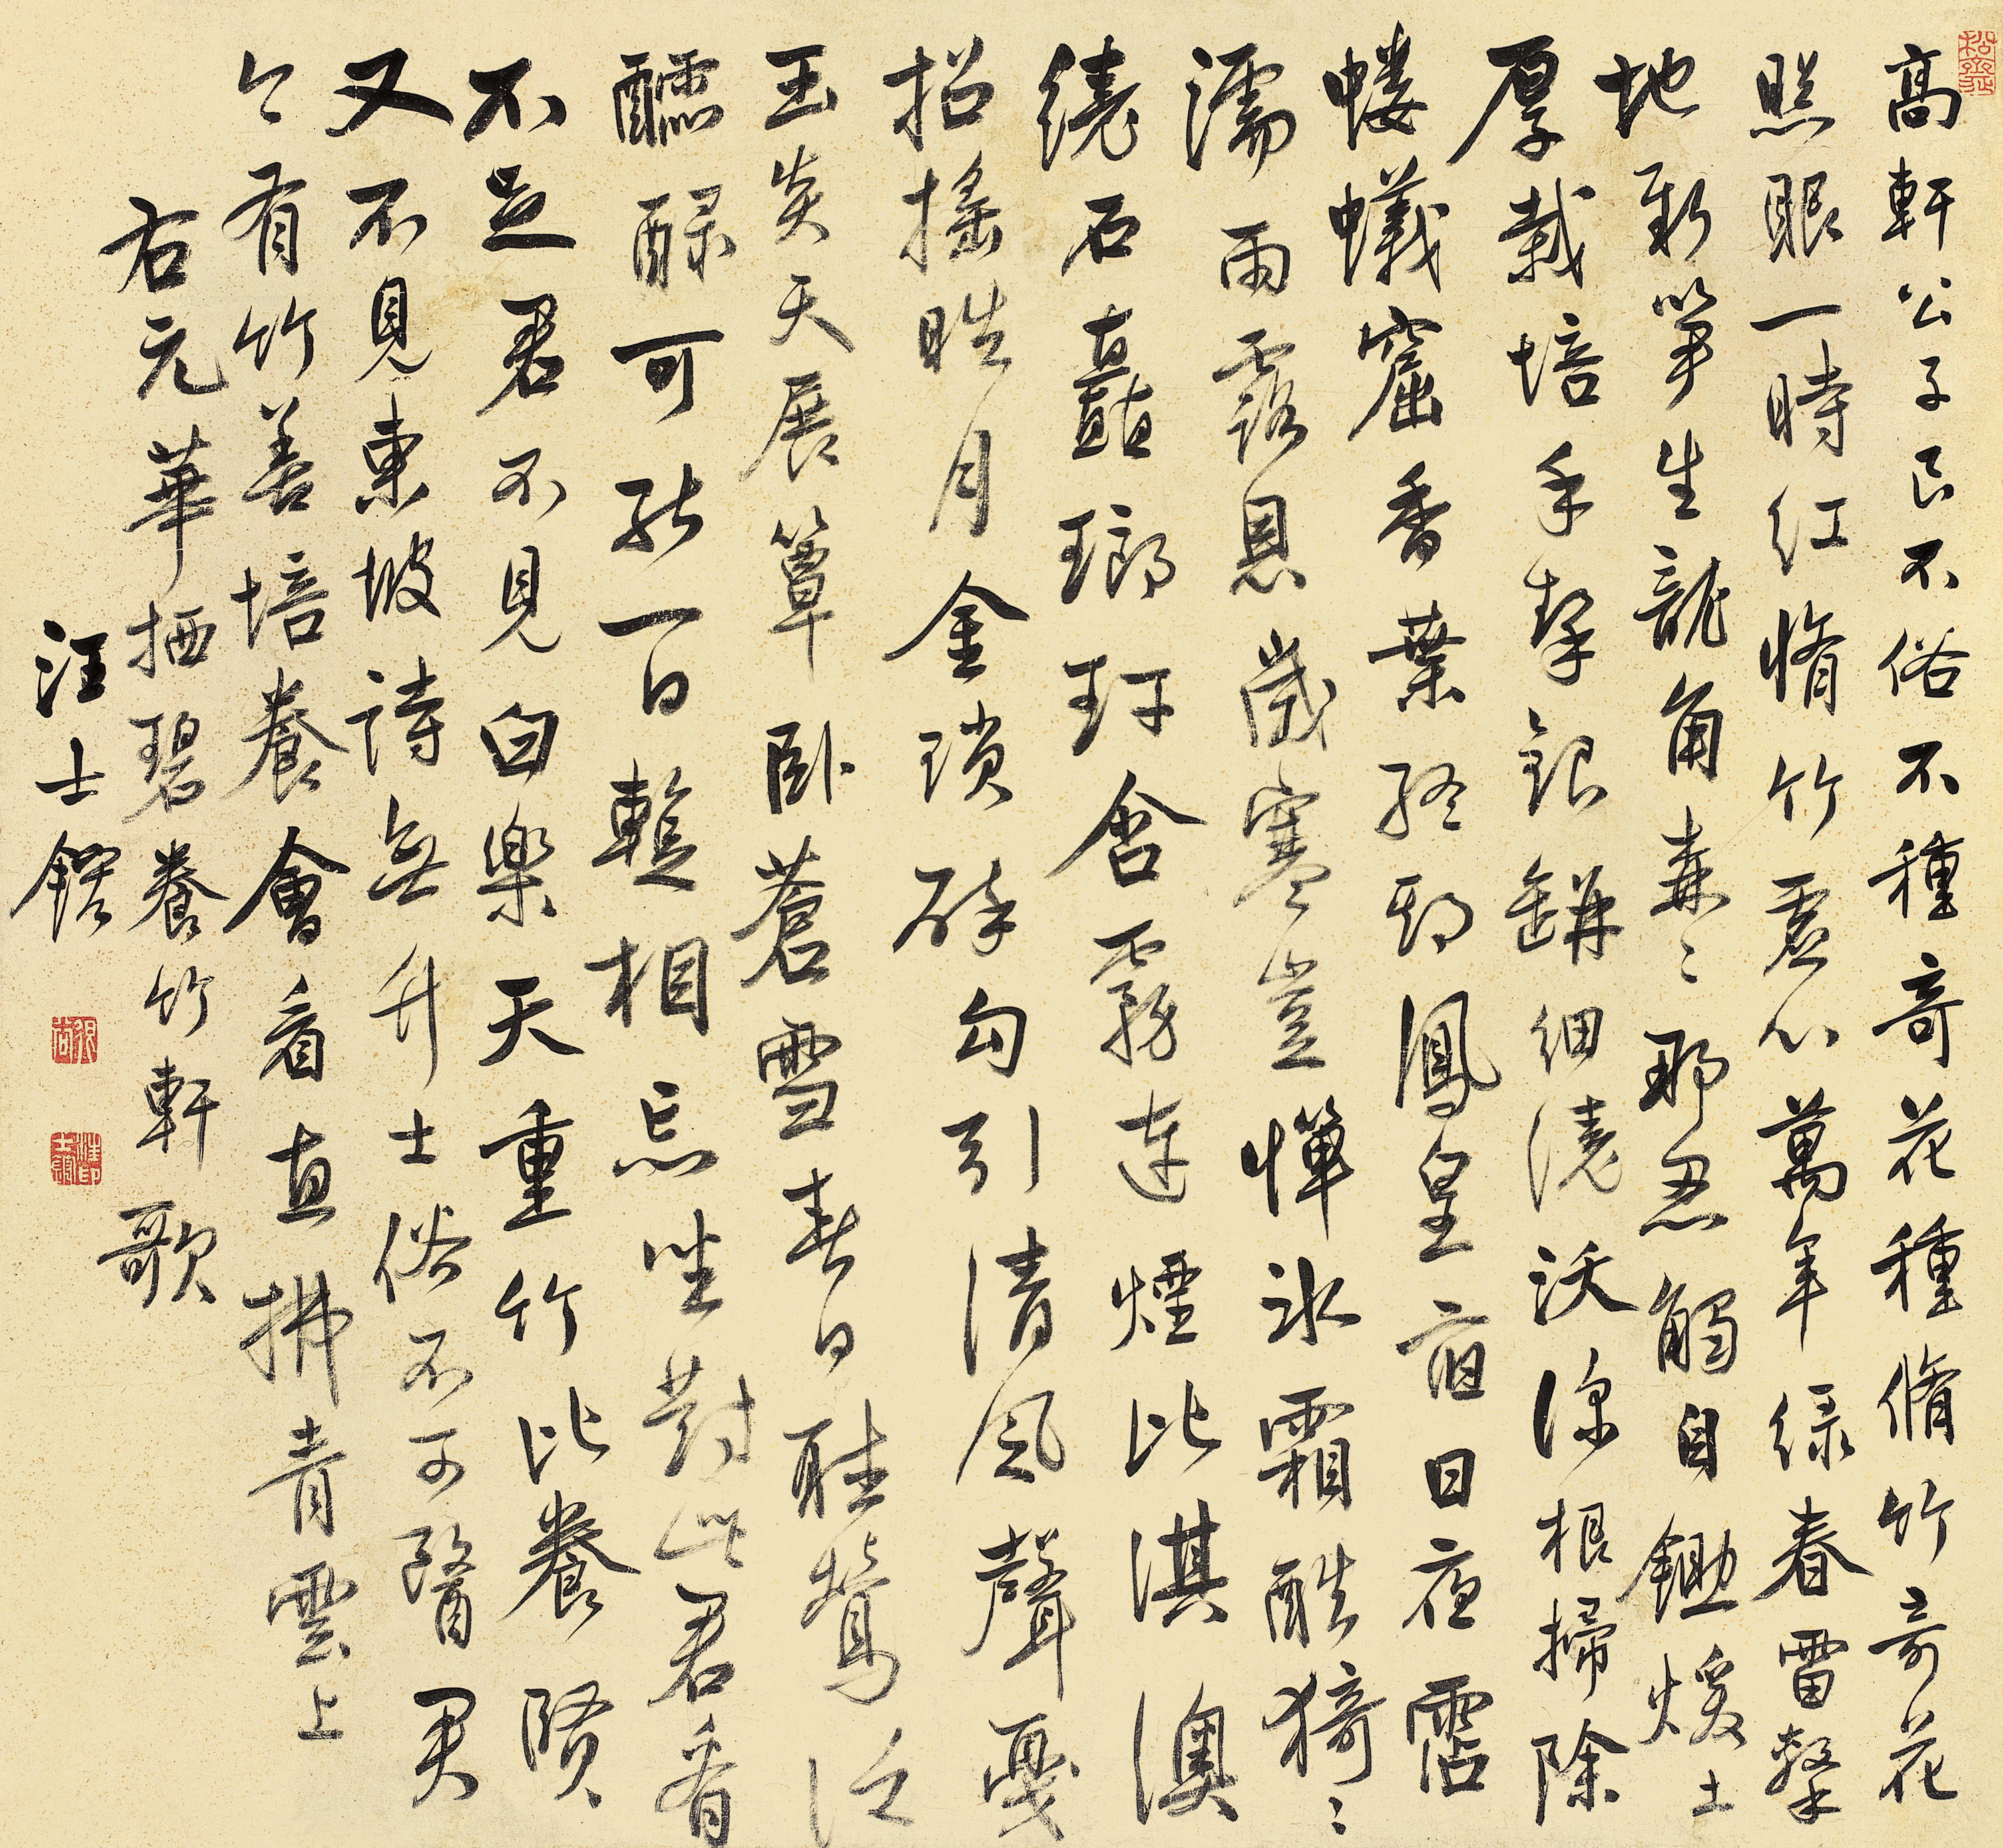 高軒公子良不俗不種奇花種脩竹奇花
照眼一時紅脩竹虛心萬年綠春雷擊
地新筍生龍角森〻那忍觸自鋤煖土
厚栽培手挈銀缾細澆沃深根掃除
螻蟻窟香葉終期鳳皇宿日夜霑
濡雨露恩歲寒豈憚冰霜酷猗〻
繞石矗瑯玕含霧連煙比淇澳
招搖晧月金瑣碎勾引清風聲戛
玉炎天展簟臥蒼雪春日聽鶯泛
醽醁可能一日輒相忘坐對此君看
不足君不見白樂天重竹比養賢
又不見東坡詩無竹士俗不可醫君
今有竹善培養會看直拂青雲上
右元華栖碧養竹軒歌
汪士鋐